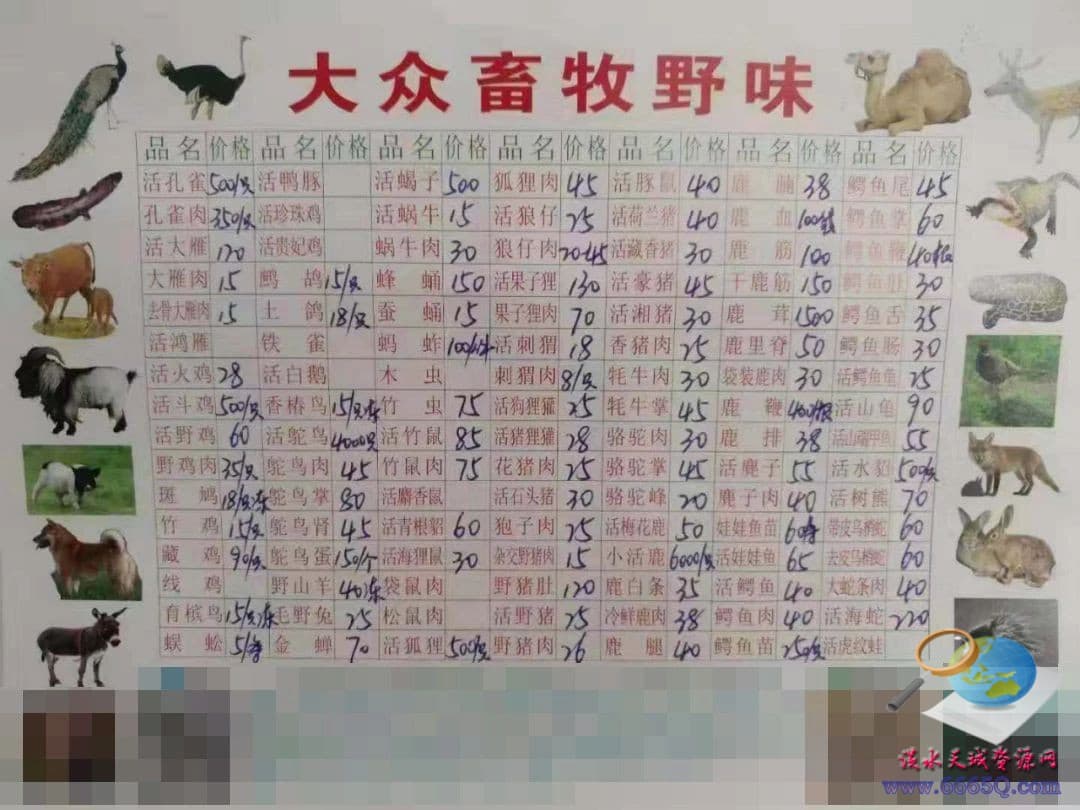 大众畜牧野味
品名 价格 品名 价格 品名 价格 品名 价格 品名 价格 品名 价格 品名 价格
活孔雀 500/只 活鸭豚 活蝎子 500 狐狸肉 45 活豚鼠 40 鹿脯 38 鳄鱼尾 45
孔雀肉 350/只 活珍珠鸡 活蜗牛 15 活狼仔 25 活荷兰猪 40 鹿血 鳄鱼掌 60
活大雁 120 活贵妃鸡 蜗牛肉 30 狼仔肉 20-45 活藏香猪 30 鹿筋 100 鳄鱼鞭
大雁肉 15 鹧鸪 15/只 蜂蛹 150 活果子狸 130 活豪猪 45 干鹿筋 150 鳄鱼肚 30
去骨大雁肉 15 土鸽 18/只 蚕蛹 15 果子狸肉 70 活湘猪 30 鹿茸 1500 鳄鱼舌 35
活鸿雁 铁雀 蚂蚱 活刺猬 18 香猪肉 25 鹿里脊 50 鳄鱼肠 30
活火鸡 28 活白鹅 木虫 刺猬肉 8/只 牦牛肉 30 袋装鹿肉 30 活鳄鱼龟 25
活斗鸡 500/只 香椿鸟 15/只冻 竹虫 75 活狗狸獾 25 牦牛掌 45 鹿鞭 活山龟 90
活野鸡 60 活鸵鸟 4000只 活竹鼠 85 活猪狸獾 28 骆驼肉 30 鹿排 38 55
野鸡肉 35/只 鸵鸟肉 45 竹鼠肉 75 花猪肉 25 骆驼掌 45 活麂子 55 活水貂 500/只
斑鸠 18/只冻 鸵鸟掌 80 活麝香鼠 活石头猪 30 骆驼峰 20 鹿子肉 40 活树熊 70
竹鸡 15/只 鸵鸟肾 45 活青根貂 60 狍子肉 25 活梅花鹿 50 娃娃鱼苗 带皮乌梢蛇 60
藏鸡 90/只 鸵鸟蛋 150/个 活海狸鼠 30 杂交野猪肉 15 小活鹿 6000/只 活娃娃鱼 65 去皮乌梢蛇 60
线鸡 野山羊 40冻 袋鼠肉 野猪肚 120 鹿白条 35 活鳄鱼 40 大蛇条肉 40
育槟鸟 15/只冻 毛野兔 25 松鼠肉 活野猪 25 冷鲜鹿肉 38 鳄鱼肉 40 活海蛇 220
蜈蚣 金蝉 70 活狐狸 500/只 野猪肉 26 鹿腿 40 鳄鱼苗 250/只 活虎纹蛙
溪水天诚资源网
www.6665Q.com